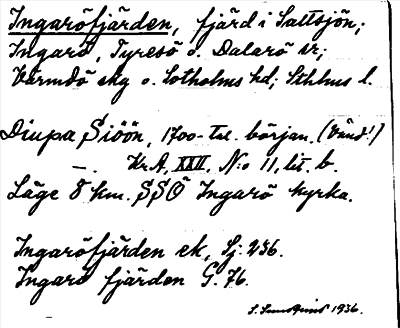 Ingaröfjärden, fjärd i Saltsjön;
Ingarö, Tyresö o. Dalarö sr;
Värmdö skg o. Sotholms hd; Sthlms l.
Diupa Siöön, 1700-tal. början. (Vänd!)
—. Kr.A, XXVI, N:o 11, lit. b.
Läge 8 km. SSÖ Ingarö kyrka.
Ingaröfjärden ek, Sj. 236.
Ingarö fjärden G. 76.
1936.